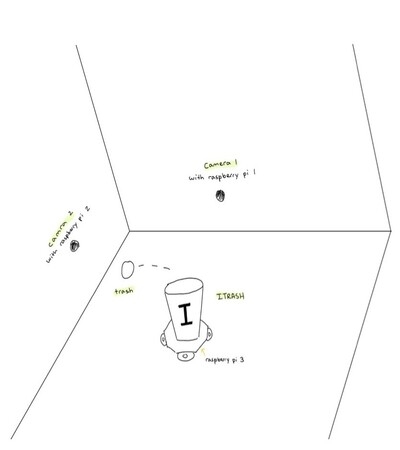 camera 1
with raspberry pi 1
camera 2
with raspberry pi 2
trash
ITRASH
I
raspberry pi 3